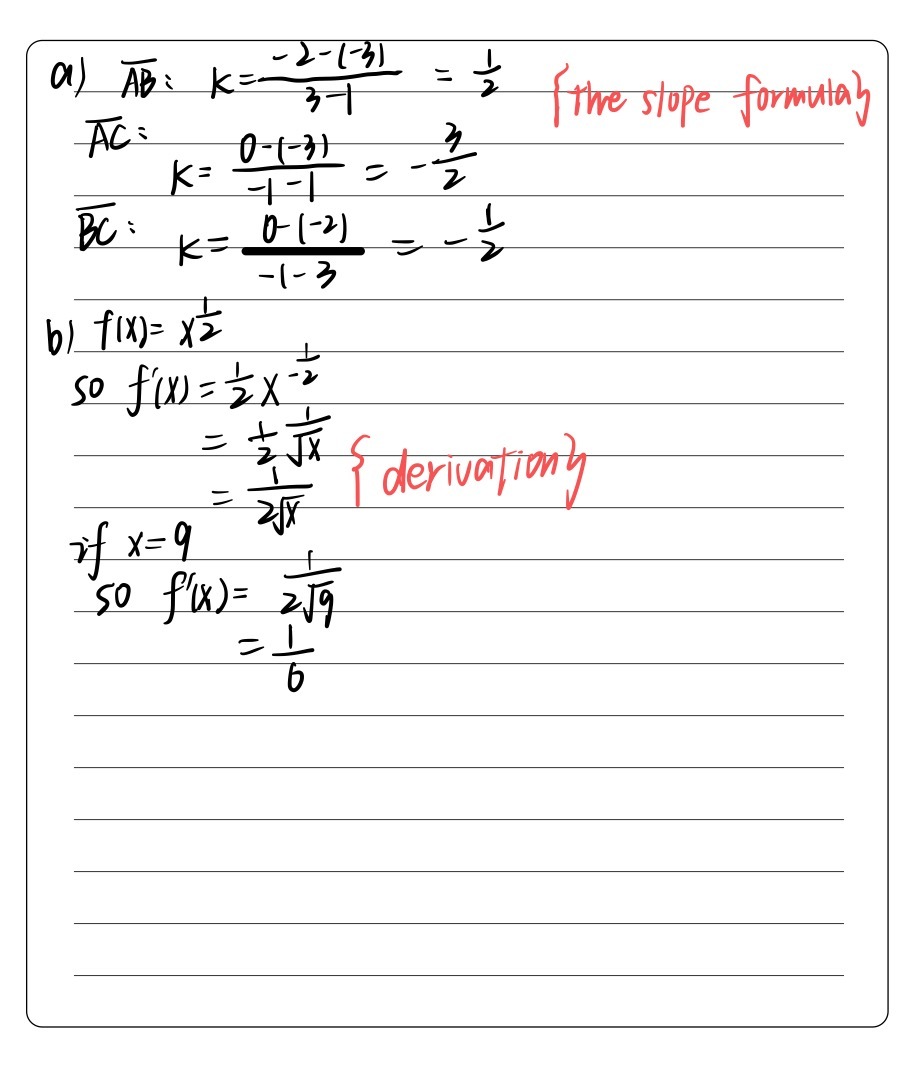 a) AB: K = -2-(-3)/3-1 = 1/2 {the slope formula}
AC:
K = 0-(-3)/-1-1 = -3/2
BC: K = 0-(-2)/-1-3 = -1/2
b) f(x) = x^1/2
so f'(x) = 1/2 x^-1/2
= 1/2 1/√x
= 1/2√x {derivation}
if x = 9
so f'(x) = 1/2√9
= 1/6